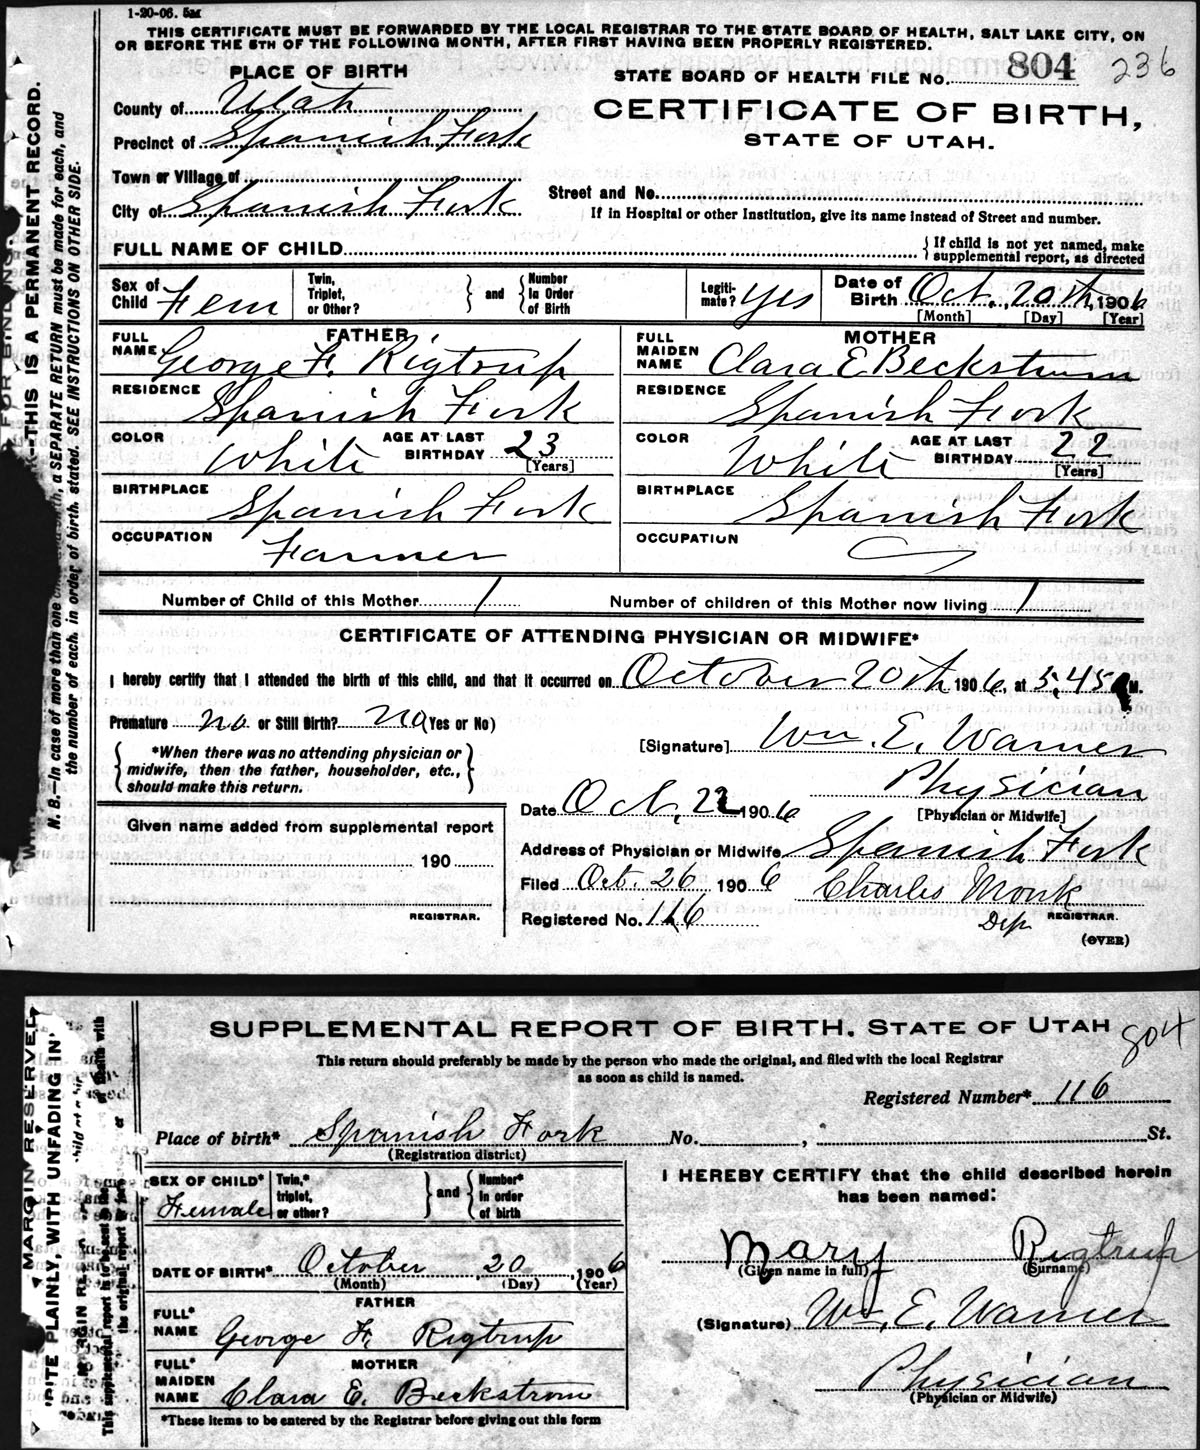 1-20-06. 5M
THIS CERTIFICATE MUST BE FORWARDED BY THE LOCAL REGISTRAR TO THE STATE BOARD OF HEALTH, SALT LAKE CITY, ON
OR BEFORE THE 5TH OF THE FOLLOWING MONTH, AFTER FIRST HAVING BEEN PROPERLY REGISTERED.
PLACE OF BIRTH
STATE BOARD OF HEALTH FILE No. 804 236
County of Utah
CERTIFICATE OF BIRTH,
Precinct of Spanish Fork
STATE OF UTAH.
Town or Village of
Street and No.
City of Spanish Fork
If in Hospital or other Institution, give its name instead of Street and number.
FULL NAME OF CHILD
If child is not yet named, make
supplemental report, as directed
Sex of Child Fem
Twin, Triplet, or Other? and Number In Order of Birth
Legiti-mate? yes
Date of Birth Oct. 20th, 1906
[Month] [Day] [Year]
FATHER
FULL NAME George F. Rigtrup
MOTHER
FULL MAIDEN NAME Clara E Beckstrom
RESIDENCE Spanish Fork
RESIDENCE Spanish Fork
COLOR White AGE AT LAST BIRTHDAY 23 [Years]
COLOR White AGE AT LAST BIRTHDAY 22 [Years]
BIRTHPLACE Spanish Fork
BIRTHPLACE Spanish Fork
OCCUPATION Farmer
OCCUPATION
Number of Child of this Mother 1 Number of children of this Mother now living 1
CERTIFICATE OF ATTENDING PHYSICIAN OR MIDWIFE*
I hereby certify that I attended the birth of this child, and that it occurred on October 20th 1906, at 5,45 M.
Premature no or Still Birth? no (Yes or No)
[Signature] Wm. E. Warner
*When there was no attending physician or
midwife, then the father, householder, etc.,
should make this return.
Physician
[Physician or Midwife]
Date Oct, 22 1906
Given name added from supplemental report
Address of Physician or Midwife Spanish Fork
190
Filed Oct. 26 1906 Charles Monk
REGISTRAR.
Registered No. 116 Dep REGISTRAR.
(OVER)
FOR BINDING.
THIS IS A PERMANENT RECORD.
N. B.—In case of more than one birth, a SEPARATE RETURN must be made for each, and
the number of each, in order of birth, stated. SEE INSTRUCTIONS ON OTHER SIDE.
SUPPLEMENTAL REPORT OF BIRTH, STATE OF UTAH 804
This return should preferably be made by the person who made the original, and filed with the local Registrar
as soon as child is named.
Registered Number* 116
Place of birth* Spanish Fork No. , St.
(Registration district)
SEX OF CHILD* Female
Twin,* triplet, or other? and Number* In order of birth
I HEREBY CERTIFY that the child described herein
has been named:
Mary Rigtrup
(Given name in full) (Surname)
DATE OF BIRTH* October 20, 1906
(Month) (Day) (Year)
FATHER
FULL* NAME George F. Rigtrup
(Signature) Wm. E. Warner
MOTHER
FULL* MAIDEN NAME Clara E. Beckstrom
Physician
(Physician or Midwife)
*These items to be entered by the Registrar before giving out this form
MARGIN RESERVED
PLAINLY, WITH UNFADING IN
This supplemental report is to be sent to the
the original report of